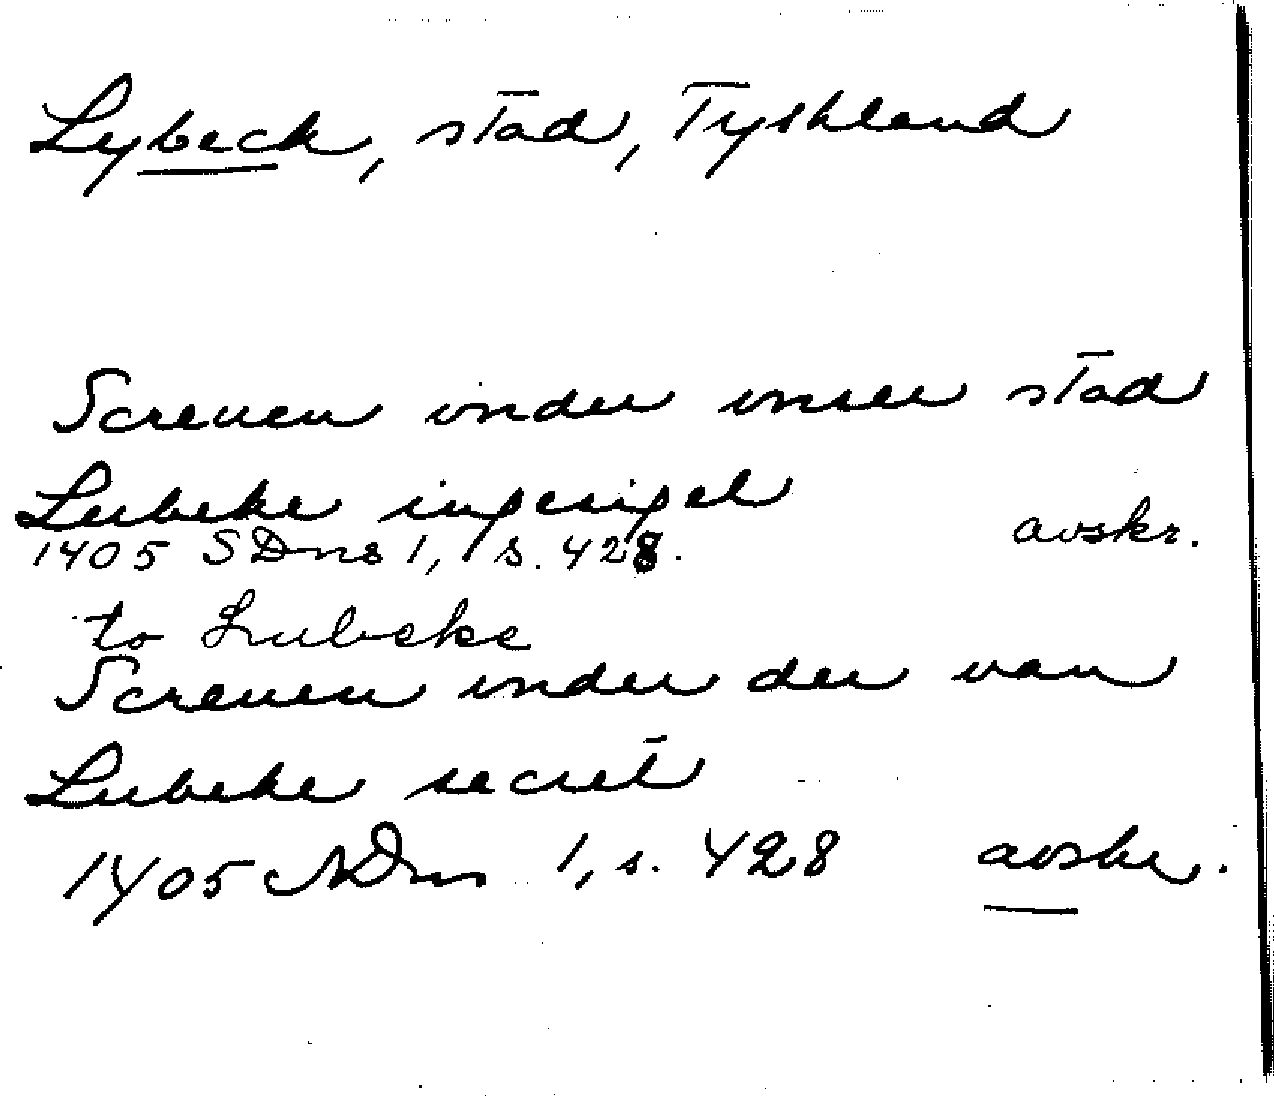 Lybeck, stad, Tyskland
Screuen vnder vnser stad
Lubeke ingesigel
avskr.
1405 SDns 1, s. 428.
to Lubeke
Screuen vnder der van
Lubeke secret
1405 SDns 1, s. 428 avskr.